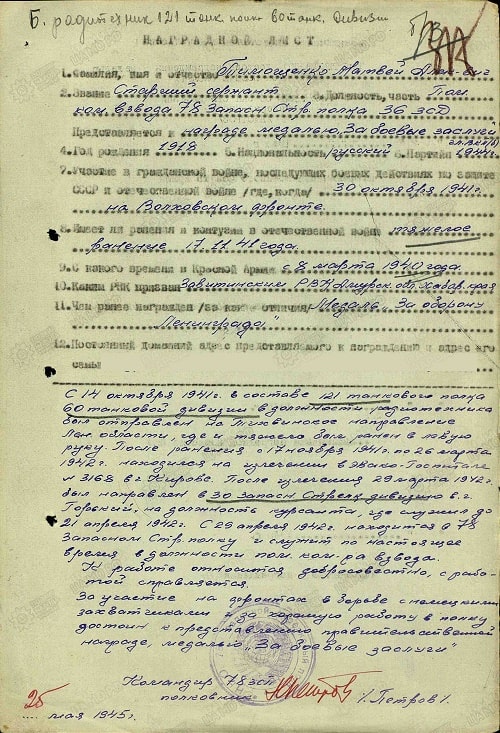 Б. радиотехник 121 танк. полка 60 танк. дивизии
НАГРАДНОЙ ЛИСТ
1. Фамилия, имя и отчество Тимощенко Матвей
2. Звание Старший сержант 3. Должность, часть Пом.
ком. взвода 78 Запасн. Стр. полка 36 зсд
Представляется к награде медалью „За боевые заслуги"
4. Год рождения 1918 5. Национальность русский 6. Партийн. чл. ВКП(б) 1944г.
7. Участие в гражданской войне, последующих боевых действиях по защите
СССР и отечественной войне /где, когда/ 30 октября 1941г.
на Волховском фронте.
8. Имеет ли ранения и контузии в отечественной войне тяжелое
ранение 17.11.41 года.
9. С какого времени в Красной Армии с 8 марта 1940 года.
10. Каким РВК призван Завитинским РВК Амурск. обл. Хабар. края
11. Чем ранее награжден /за какие отличия/ Медаль „За оборону
Ленинграда"
12. Постоянный домашний адрес представляемого к награждению и адрес его
семьи
С 14 октября 1941г. в составе 121 танкового полка
60 танковой дивизии в должности радиотехника
был отправлен на Тихвинское направление
Лен. области, где и тяжело был ранен в левую
руку. После ранения с 17 ноября 1941г. по 26 марта
1942г. находился на излечении в Эвако-Госпитале
№ 3168 в г. Кирове. После излечения 29 марта 1942г.
был направлен в 30 запасн. Стрелк. дивизию в г.
Горький, на должность курсанта, где служил до
21 апреля 1942г. С 29 апреля 1942г. находится в 78
Запасном Стр. полку и служит по настоящее
время в должности пом. ком-ра взвода.
К работе относится добросовестно, с рабо-
той справляется.
За участие на фронтах в борьбе с немецкими
захватчиками и за хорошую работу в полку
достоин к представлению правительственной
награде, медалью „За боевые заслуги"
Командир 78 зсп
полковник /Петров/.
25
мая 1945г.